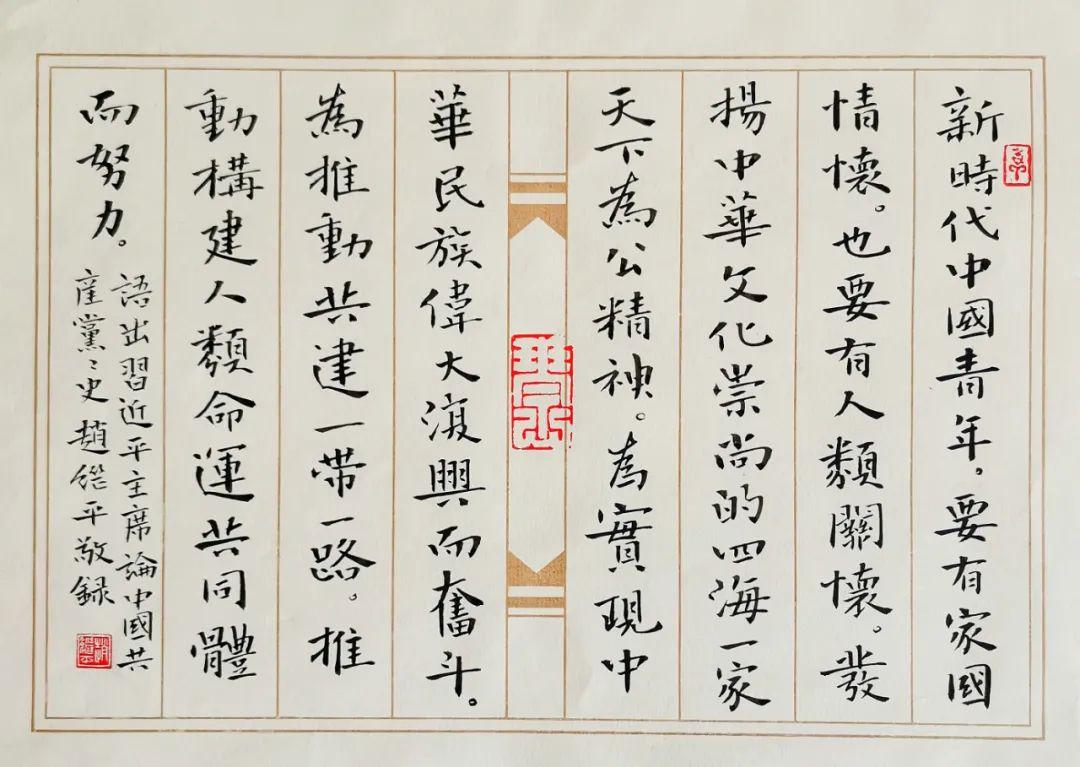 新時代中國青年，要有家國
情懷。也要有人類關懷。發
揚中華文化崇尚的四海一家
天下為公精神。為實現中
華民族偉大復興而奮斗。
為推動共建一帶一路。推
動構建人類命運共同體
而努力。
語出習近平主席論中國共
産黨〻史 趙繼平敬録